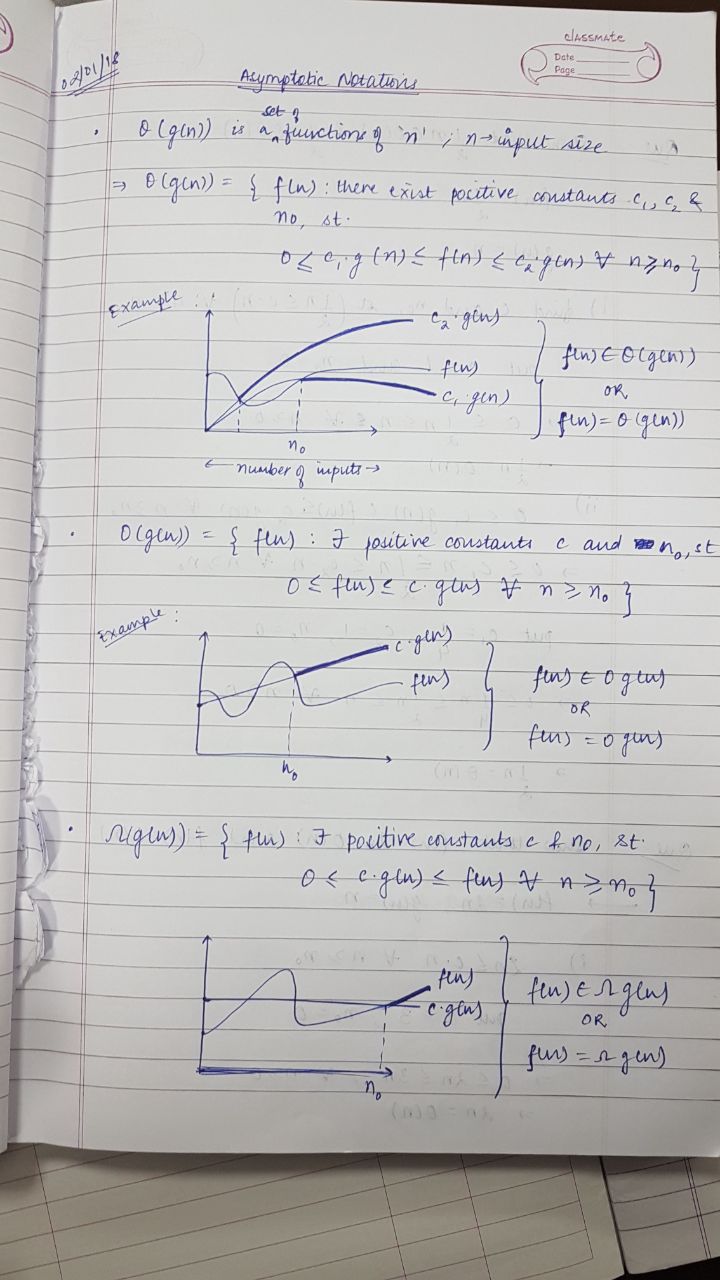 classmate
Date
Page
02/01/18
Asymptotic Notations
set of
• θ(g(n)) is a functions of 'n' ; n → input size
⇒ θ(g(n)) = { f(n) : there exist positive constants c₁, c₂ &
n₀, st.
0 ≤ c₁·g(n) ≤ f(n) ≤ c₂·g(n) ∀ n ≥ n₀ }
Example :
c₂·g(n)
f(n)
c₁·g(n)
n₀
← number of inputs →
f(n) ∈ θ(g(n))
OR
f(n) = θ(g(n))
• O(g(n)) = { f(n) : ∃ positive constants c and n₀, st
0 ≤ f(n) ≤ c·g(n) ∀ n ≥ n₀ }
Example :
c·g(n)
f(n)
n₀
f(n) ∈ O g(n)
OR
f(n) = O g(n)
• Ω(g(n)) = { f(n) : ∃ positive constants c & n₀, st.
0 ≤ c·g(n) ≤ f(n) ∀ n ≥ n₀ }
f(n)
c·g(n)
n₀
f(n) ∈ Ω g(n)
OR
f(n) = Ω g(n)